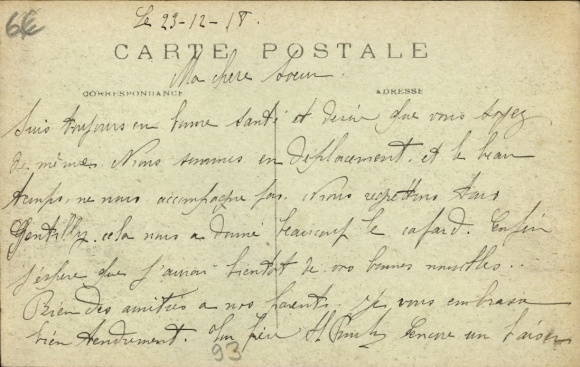 6€
Le 23-12-18.
CARTE POSTALE
Ma chère soeur
CORRESPONDANCE ADRESSE
Suis toujours en bonne santé et désire que vous soyez
de même. Nous sommes en déplacement et le beau
temps ne nous accompagne pas. Nous regrettons tous
Gentilly. cela nous a donné beaucoup le cafard. Enfin
j'espère que j'aurai bientôt de vos bonnes nouvelles..
Bien des amitiés à nos parents. je vous embrasse
bien tendrement. frère Encore un baiser
93